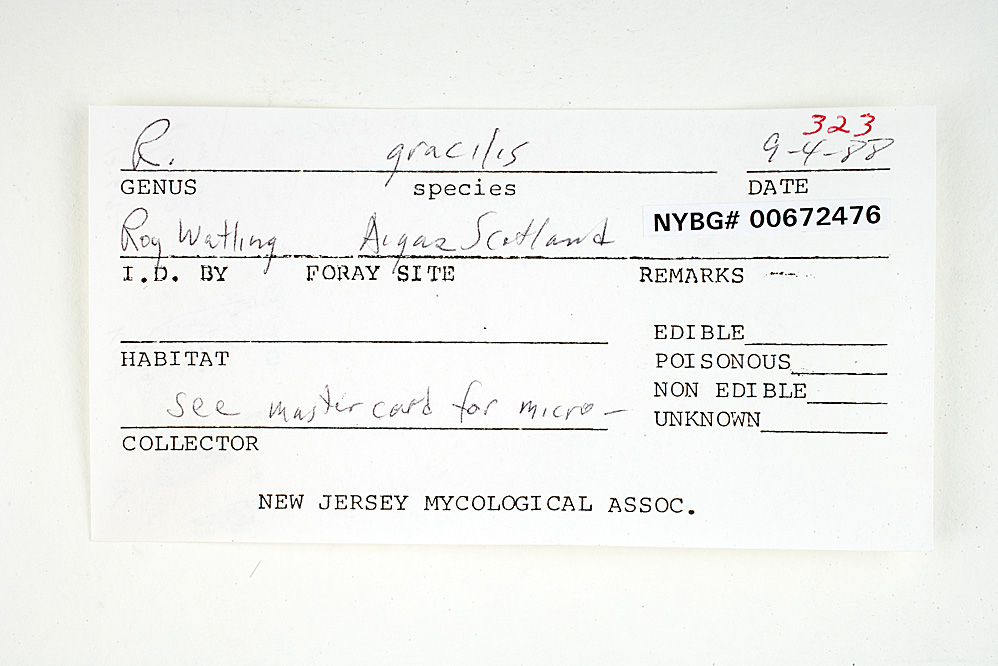 323
R. gracilis 9-4-88
GENUS species DATE
NYBG# 00672476
Roy Watling Aigas Scotland
I.D. BY FORAY SITE REMARKS
EDIBLE
HABITAT POISONOUS
NON EDIBLE
see mastercard for micro-
UNKNOWN
COLLECTOR
NEW JERSEY MYCOLOGICAL ASSOC.